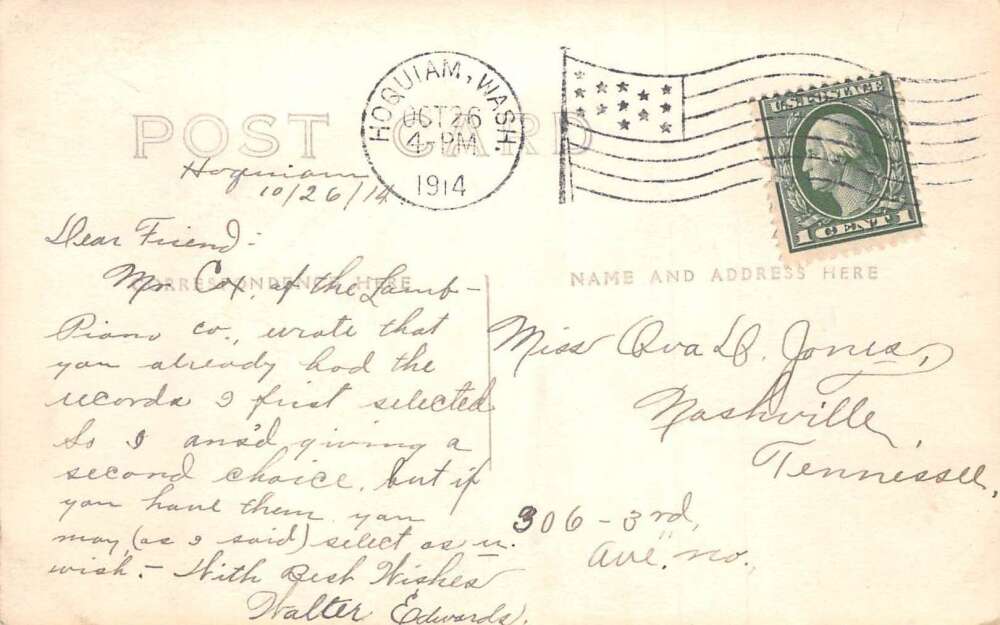 POST CARD
HOQUIAM, WASH.
OCT 26
4-PM
1914
U.S. POSTAGE
1 CENT 1
Hoquiam
10/26/14
Dear Friend:-
CORRESPONDENCE HERE
Mr. Cox, of the Lamb-
Piano co., wrote that
you already had the
records I first selected
So I ans'd, giving a
second choice, but if
you have them you
may, (as I said) select as u.
wish.- With Best Wishes
Walter Edwards.
NAME AND ADDRESS HERE
Miss Ova D. Jones,
Nashville,
Tennessee,
306 - 3rd,
Ave. no.,